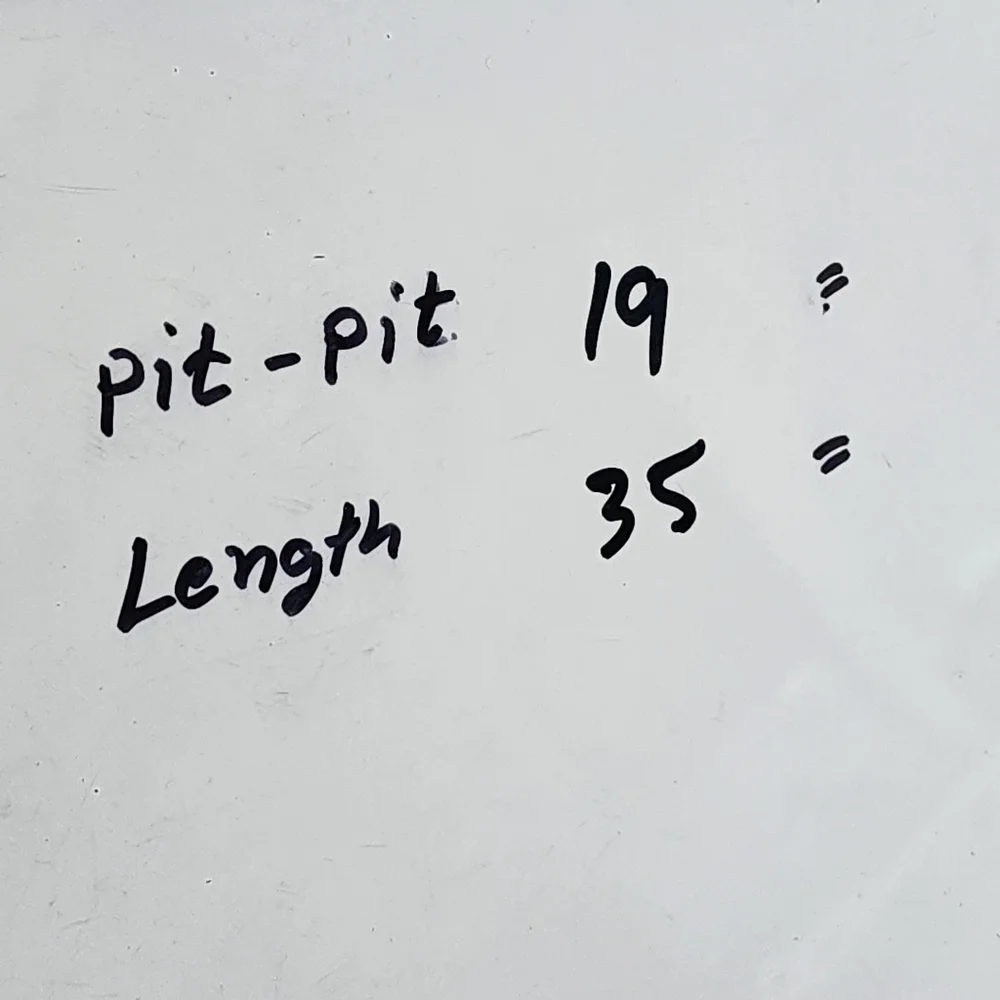 pit - pit 19 "
Length 35 "